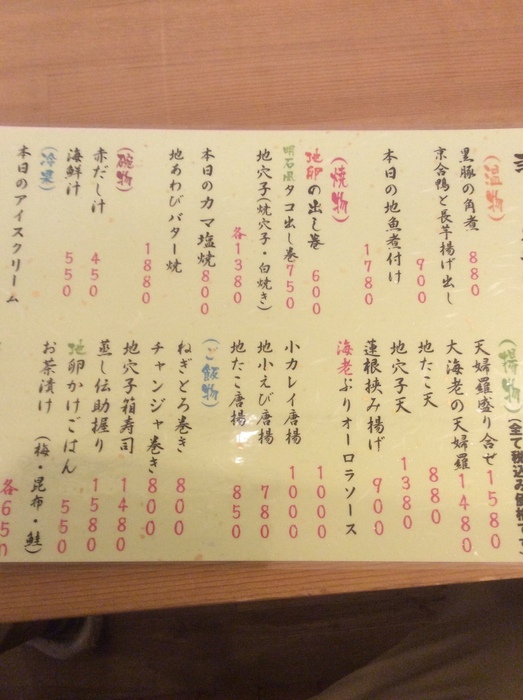 (温物)
黒豚の角煮 880
京合鴨と長芋揚げ出し 900
本日の地魚煮付け 1780
(焼物)
地卵の出し巻 600
明石風タコ出し巻 750
地穴子(焼穴子・白焼き) 各1380
本日のカマ塩焼 800
地あわびバター焼 1880
(碗物)
赤だし汁 450
海鮮汁 550
(冷菓)
本日のアイスクリーム
(揚物)(全て税込み価格です)
天婦羅盛り合せ 1580
大海老の天婦羅 1480
地たこ天 880
地穴子天 1380
蓮根挟み揚げ 900
海老ぷりオーロラソース 1000
小カレイ唐揚 1000
地小えび唐揚 780
地たこ唐揚 850
(ご飯物)
ねぎとろ巻き 800
チャンジャ巻き 800
地穴子箱寿司 1480
蒸し伝助握り 1580
地卵かけごはん 550
お茶漬け (梅・昆布・鮭) 各650